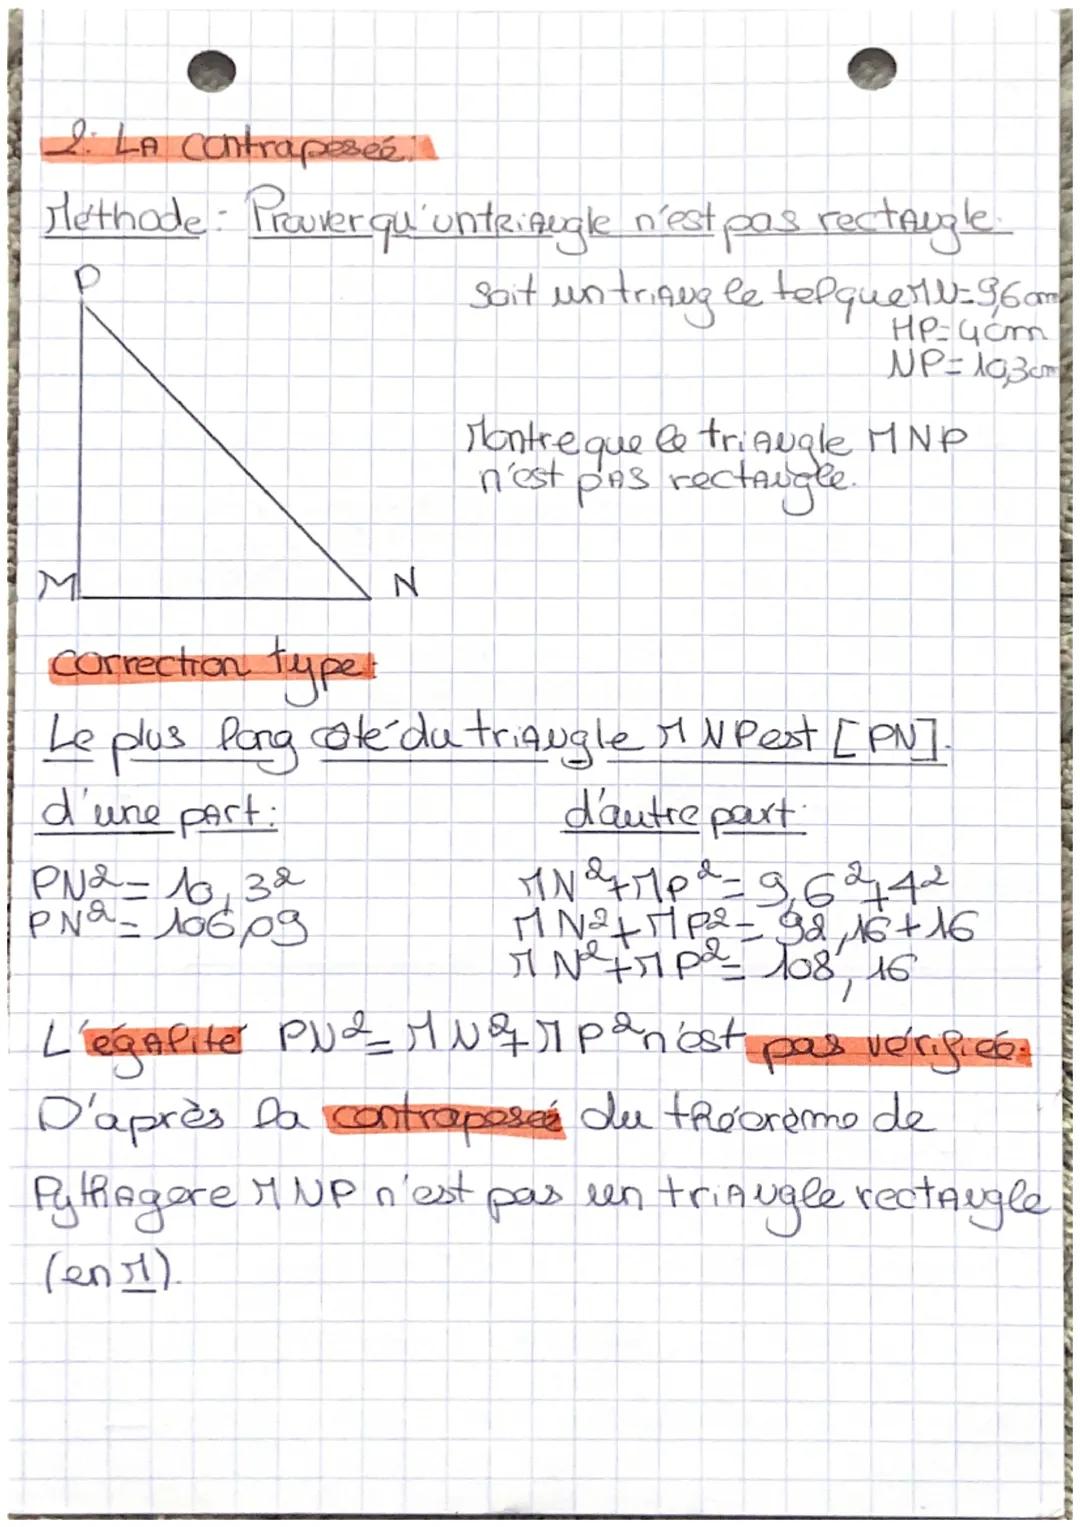 2. LA contraposeé:
Méthode: Prouver qu'un triangle n'est pas rectangle.
P
soit un triangle tel que MN=9,6cm
MP=4cm
NP=10,3cm
Montre que le triangle MNP
n'est pas rectangle.
M N
correction type:
Le plus long coté du triangle MNP est [PN].
d'une part: d'autre part:
PN²= 10,3² MN²+MP²= 9,6²+4²
PN²= 106,09 MN²+MP²= 92,16+16
MN²+MP²= 108,16
L'égalité PN²=MN²+MP² n'est pas vérifiée.
D'après la contraposeé du théorème de
Pythagore MNP n'est pas un triangle rectangle
(en M).